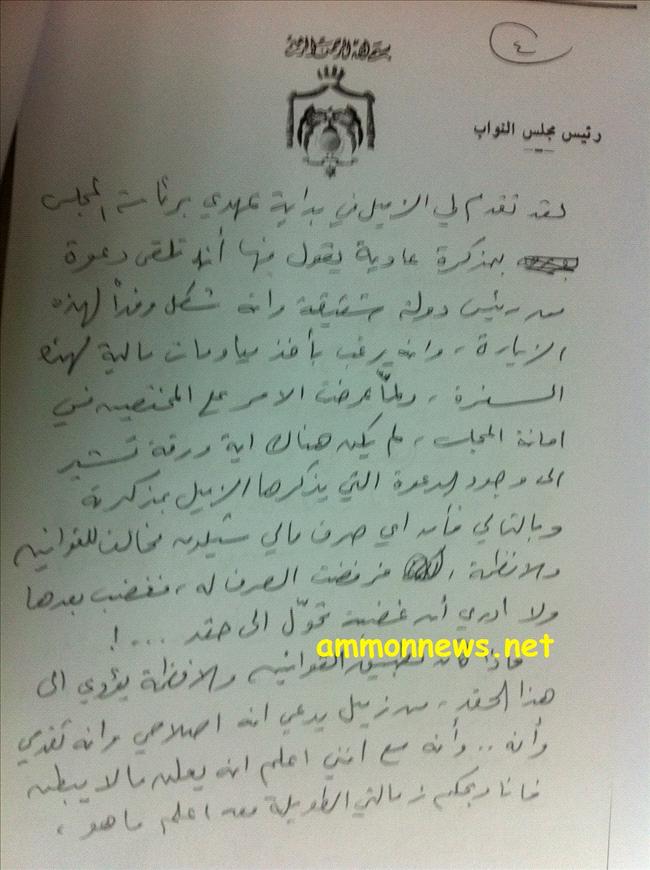 ٤
بسم الله الرحمن الرحيم
رئيس مجلس النواب
لقد تقدم لي الزميل في بداية عهدي برئاسة المجلس
بمذكرة عادية يقول فيها أنه تلقى دعوة
من رئيس دولة شقيقة وانه شكل وفداً لهذه
الزيارة، وانه يرغب بأخذ مياومات مالية لهذه
السفرة، ولمّا عرضت الامر على المختصين في
امانة المجلس، لم يكن هناك اية ورقة تشير
الى وجود الدعوة التي يذكرها الزميل بمذكرته
وبالتالي فأن اي صرف مالي سيكون مخالف للقوانين
والانظمة، فرفضت الصرف له، فغضب بعدها
ولا ادري أن غضبه تحوّل الى حقد ...!
ammonnews.net
فاذا كان تطبيق القوانين والانظمة يؤدي الى
هذا الحقد، من زميل يدعي انه اصلاحي وانه تقدمي
وأنه .. وأنه مع انني اعلم انه يعلن ما لا يبطن
فانا وبحكم زمالتي الطويلة معه اعلم ما هو،